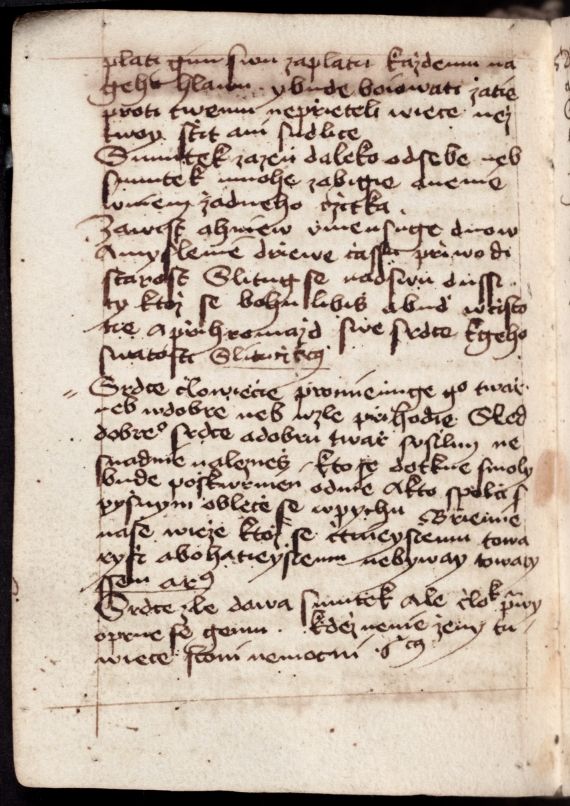 plati gim swu zaplatu každemu na
gehu hlawu . y bude boiowati zatie
proti twemu neprieteli wiece než
twoy sčit ani sudlice
Smutek zazen daleko od sebe neb
smutek mnohe zabigie anenie
wniem žadneho vžitka .
Zawist ahniew vmensuge dnow
Amyslenie driewe cassu priwodi
starost Slitug se nadswu dussi .
ty ktož se bohu libiš abud wčisto
tie Aprihromažd swe srdce kgeho
swatosti
Srdce člowiečie promieniuge go twař
neb wdobre neb wzle prihodie Sled
dobreo srdce adobru twař susilim ne
snadnie nalezneš . kto se dotkne smoly
bude poskwrnen odnie Akto spolčí s
pysnym obleče se wpychu Břiemie
nase wieze ktož se čtnieyssemu towa
ryší abohatieyssemu nebyway towary
ssem
Srdce zle dawa smutek Ale člok prwy
oprne se gemu . kdež nenie ženy tu
wiece stoni nemocni .